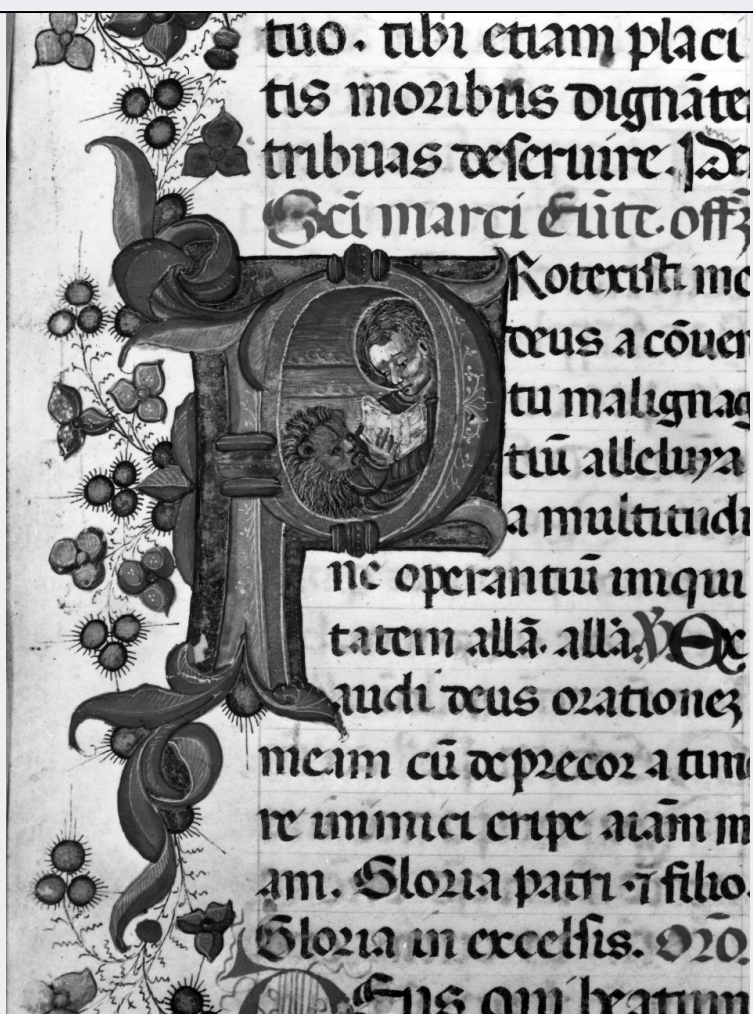 tuo. tibi etiam placi
tis moribus dignāte
tribuas deseruire. P de
Sci marci Eūte. offz
PRotexisti me
deus a cōuen
tu malignan
tiū alleluya
a multitudi
ne operantiū iniqui
tatem allā. allā. V Ex
audi deus orationez
meam cū deprecor a timo
re inimici eripe aīam m
am. Gloria patri ⁊ filio.
Gloria in excelsis. Oro.
DEus qui beatum